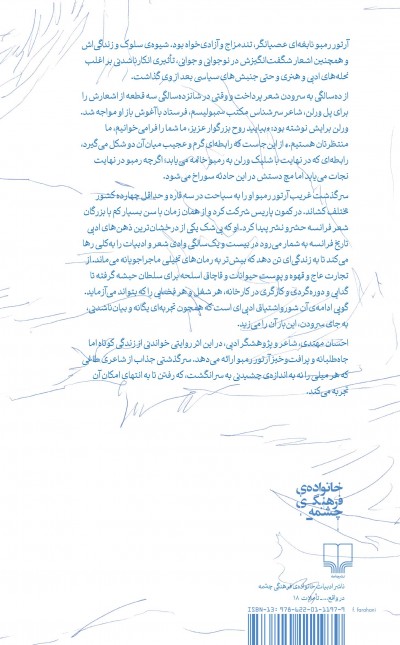 آرتور رمبو نابغه‌ای عصیانگر، تندمزاج و آزادی‌خواه بود. شیوه‌ی سلوک و زندگی‌اش
و همچنین اشعار شگفت‌انگیزش در نوجوانی و جوانی، تأثیری انکارناشدنی بر اغلب
نحله‌های ادبی و هنری و حتی جنبش‌های سیاسی بعد از وی گذاشت.
از ده‌سالگی به سرودن شعر پرداخت و وقتی در شانزده‌سالگی سه قطعه از اشعارش را
برای پل ورلن، شاعر سرشناس مکتب سمبولیسم، فرستاد با آغوش باز او مواجه شد.
ورلن برایش نوشته بود: «بیایید روح بزرگوار عزیز، ما شما را فرا می‌خوانیم، ما
منتظرتان هستیم.» از این جاست که رابطه‌ای گرم و عجیب میان آن دو شکل می‌گیرد،
رابطه‌ای که در نهایت با شلیک ورلن به رمبو خاتمه می‌یابد؛ اگرچه رمبو در نهایت
نجات می‌یابد اما مچ دستش در این حادثه سوراخ می‌شود.
سرگذشت غریب آرتور رمبو او را به سیاحت در سه قاره و حداقل چهارده کشور
مختلف کشاند. در کمون پاریس شرکت کرد و از همان زمان با سن بسیار کم با بزرگان
شعر فرانسه حشر و نشر پیدا کرد. او که بی‌شک یکی از درخشان‌ترین ذهن‌های ادبی
تاریخ فرانسه به شمار می‌رود در بیست و یک‌سالگی وادی شعر و ادبیات را به‌کلی رها
می‌کند تا به زندگی‌ای تن دهد که بیش‌تر به رمان‌های تخیلی ماجراجویانه می‌ماند. از
تجارت عاج و قهوه و پوست حیوانات و قاچاق اسلحه برای سلطان حبشه گرفته تا
گدایی و دوره‌گردی و کارگری در کارخانه، هر شغل و هر فضایی را که بتواند می‌آزماید.
گویی ادامه‌ی آن شور و اشتیاق ادبی‌ای است که همچون تجربه‌ای یگانه و بیان‌ناشدنی،
به جای سرودن، این بار آن را می‌زید.
احسان مهتدی، شاعر و پژوهشگر ادبی، در این اثر روایتی خواندنی از زندگی کوتاه اما
جاه‌طلبانه و پرافت‌وخیز آرتور رمبو ارائه می‌دهد. سرگذشتی جذاب از شاعری طاغی
که هر میلی را نه به اندازه‌ی چشیدنی به سرانگشت، که رفتن تا به انتهای امکان آن
تجربه می‌کند.
خانواده‌ی
فرهنگی
چشمه
نشرچشمه
ناشر ادبیات خانواده‌ی فرهنگی چشمه
در واقع... ـ تأملات ۱۸
ISBN-13: 978-622-01-1197-9
f. farahani